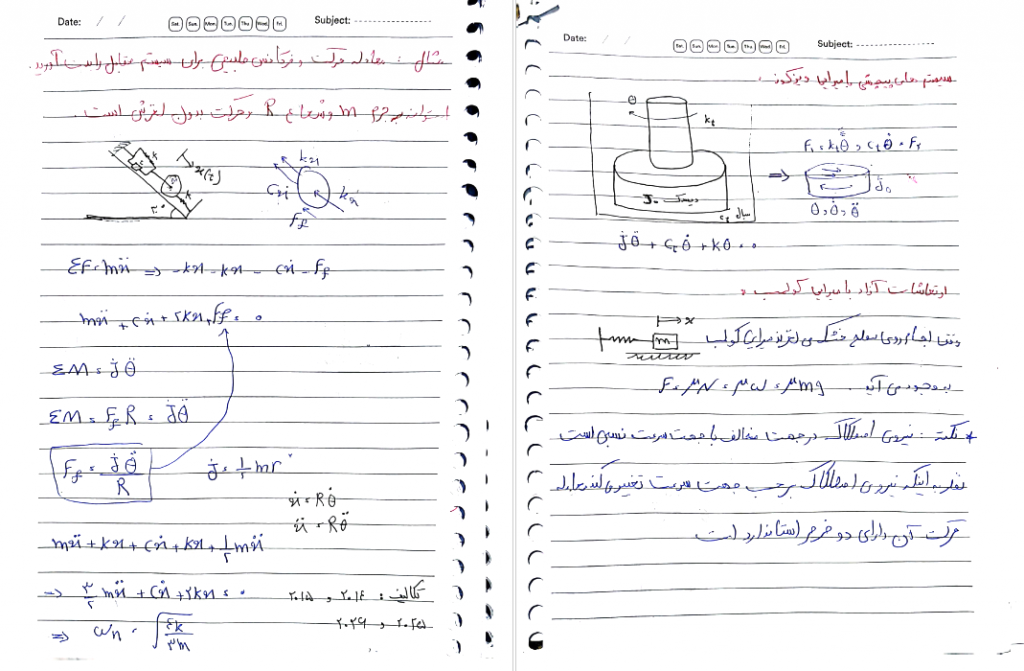 Date: / /
Sat. Sun. Mon. Tue. Thu. Wed. Fri.
Subject:
مثال : معادله حرکت و فرکانس طبیعی برای سیستم مقابل را بدست آورید.
استوانه به جرم m و شعاع R و حرکت بدون لغزش است.
x(t)
k
c
k
30°
kx
cẋ
kx
F_f
ΣF = mẍ ⇒ -kx - kx - cẋ - F_f
mẍ + cẋ + 2kx + F_f = 0
ΣM = J̈θ̈
ΣM = F_f R = Jθ̈
F_f = Jθ̈ / R
J = ½ mr²
ẋ = Rθ̇
ẍ = Rθ̈
mẍ + kx + cẋ + kx + ½ mẍ
→ ۳/۲ mẍ + cẋ + ۲kx = 0
تکالیف : ۲۰۱۴ و ۲۰۱۵
۲۰۲۵ و ۲۰۲۶
⇒ ω_n = √(۴k/۳m)
Date: / /
Sat. Sun. Mon. Tue. Thu. Wed. Fri.
Subject:
سیستم های پیچشی با میرایی ویسکوز.
θ
k_t
دیسک J₀
سیال c_t
⇒
J₀
θ, θ̇, θ̈
Jθ̈ + c_tθ̇ + kθ = 0
ارتعاشات آزاد با میرایی کولمب :
x
m
وقتی اجسام روی سطح خشک می لغزند میرایی کولمب
به وجود می آید. F = μN = μω = μmg
* نکته : نیروی اصطکاک در جهت مخالف با جهت سرعت نسبی است
نظر به اینکه نیروی اصطکاک برحسب جهت سرعت تغییر می کند معادله
حرکت آن دارای دو فرم استاندارد است